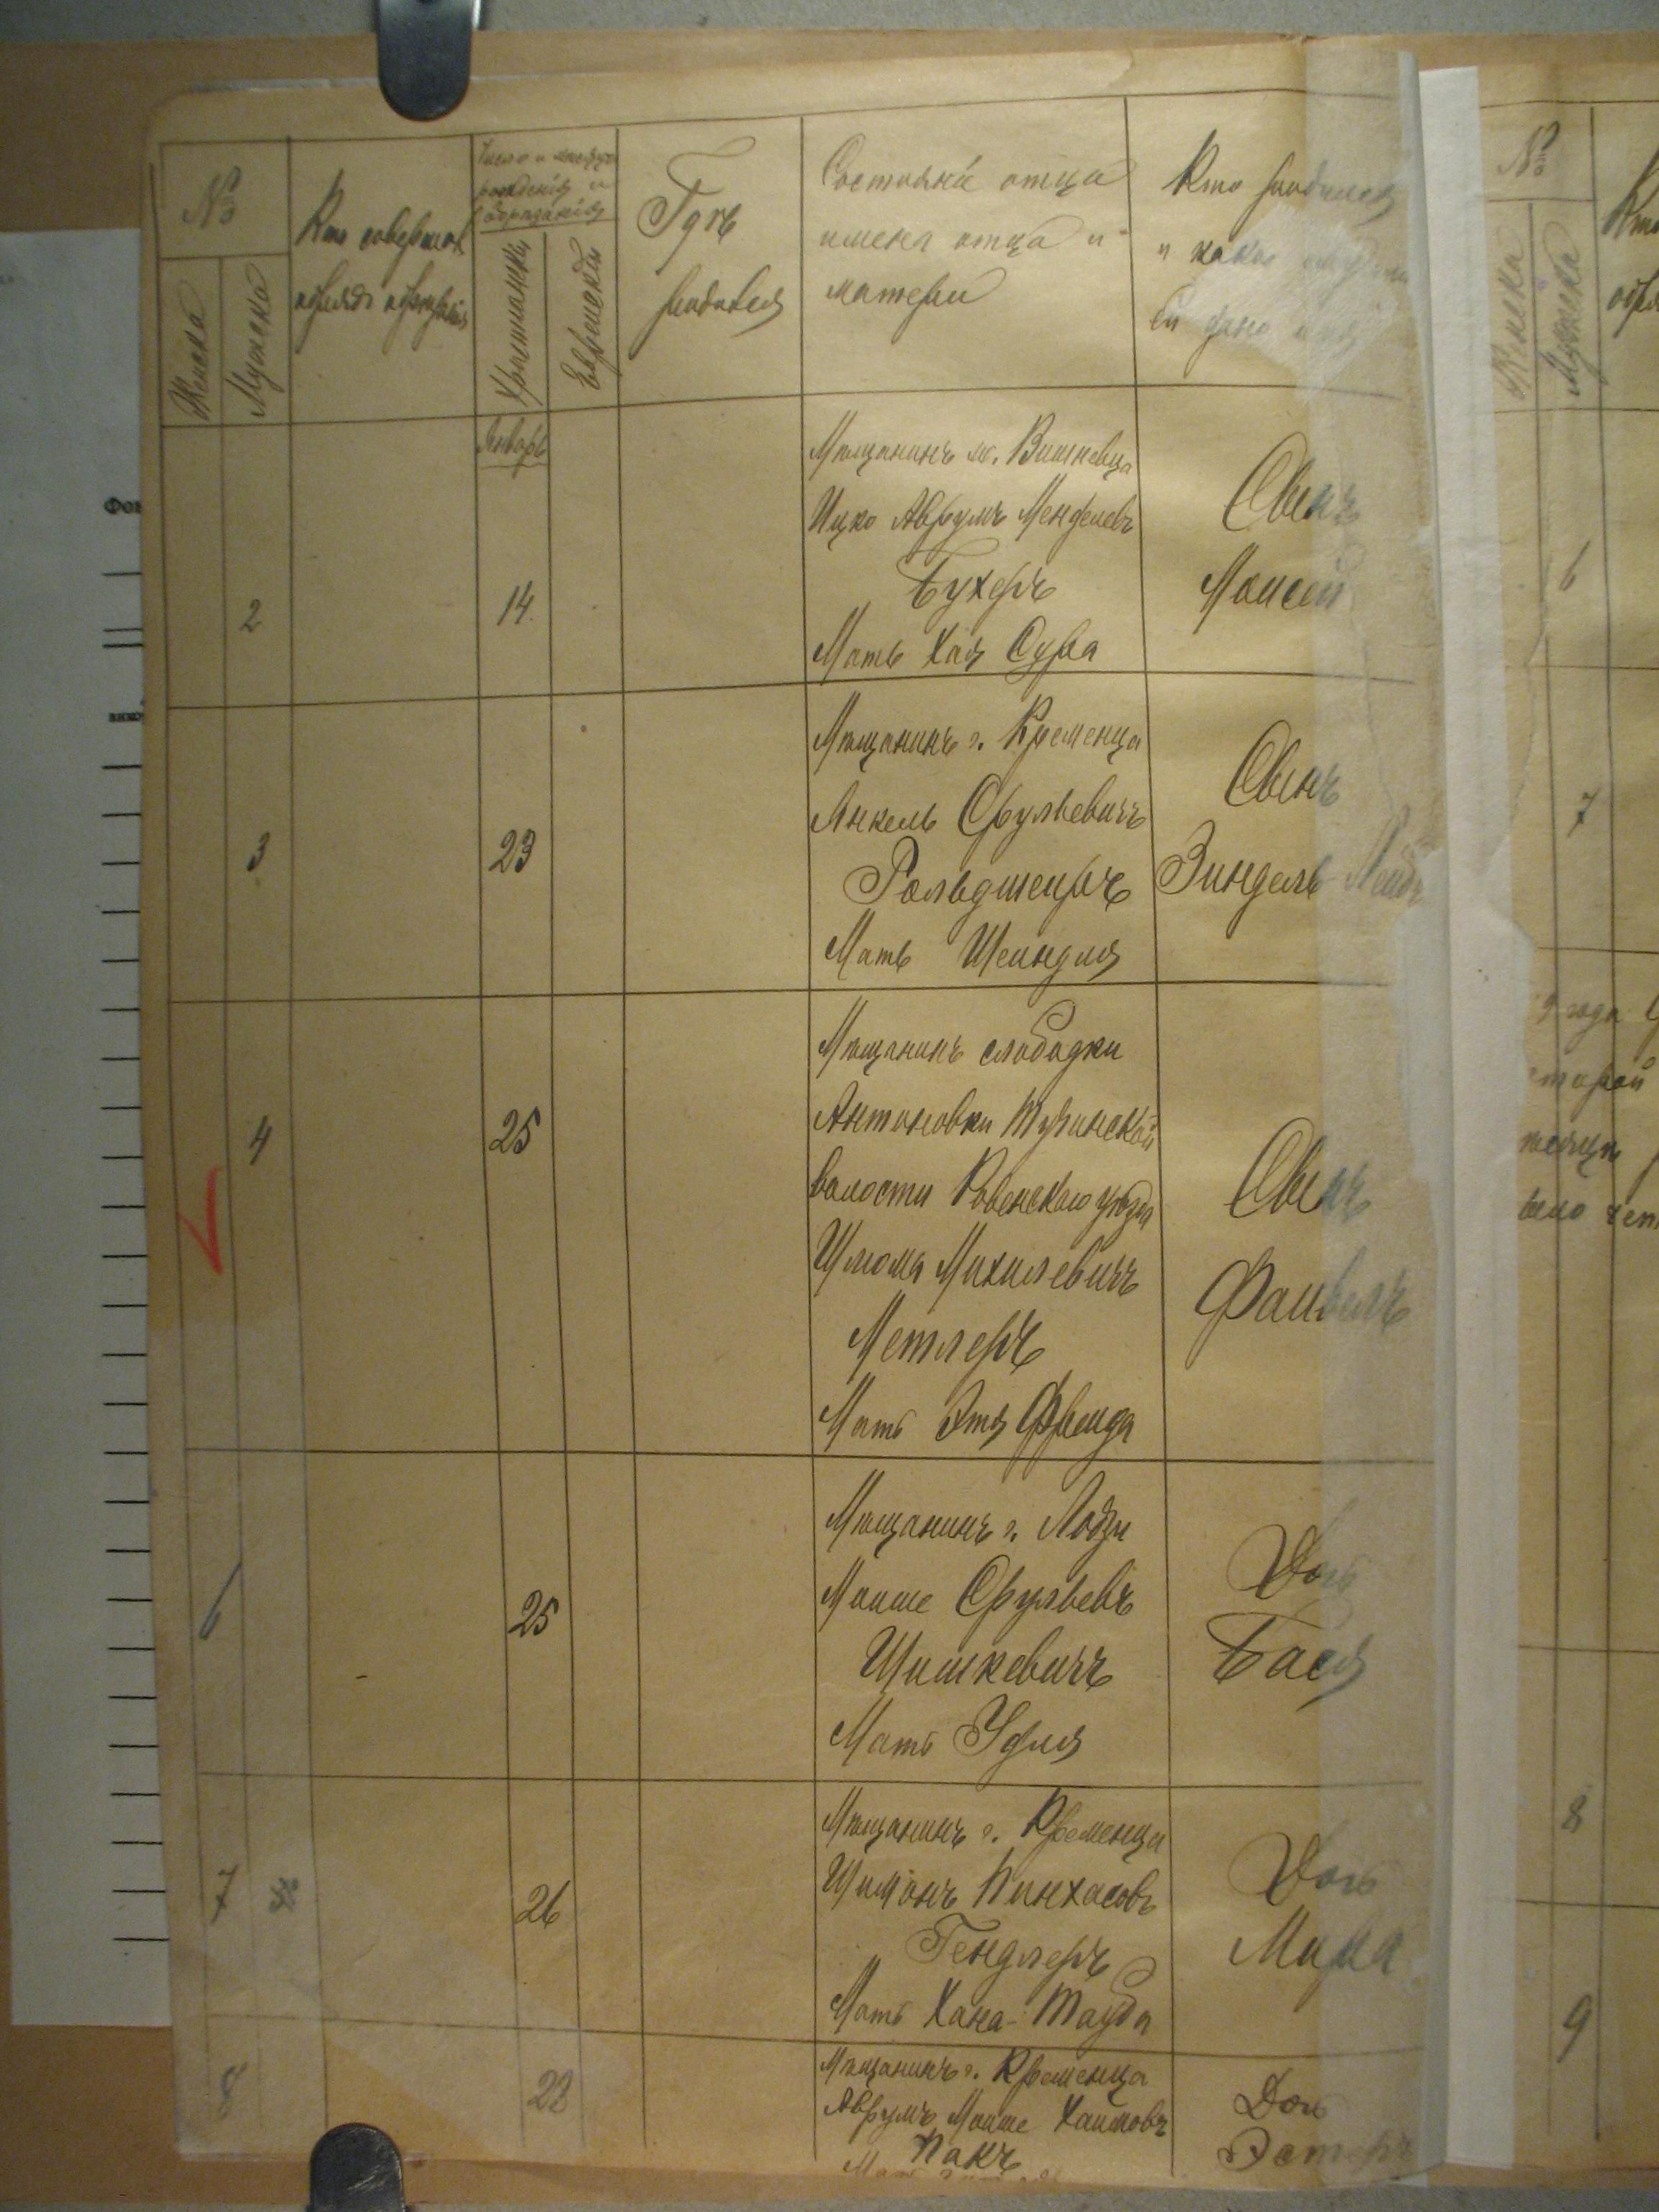 №
Женска
Мужеска
Кто совершал
обрядъ обрѣзанія
Число и мѣсяцъ
рожденія и
обрѣзанія
Христіанскій
Еврейскій
Гдѣ
родился
Состояніе отца
имена отца и
матери
Кто родился
и какое
ей дано имя
Январь
2
14
Мѣщанинъ м. Вишневца
Ицко Аврумъ Менделевъ
Бухеръ
Мать Хая Сура
Сынъ
Моисей
3
23
Мѣщанинъ г. Кременца
Янкель Срульевичъ
Рольдшеиръ
Мать Шеиндля
Сынъ
Зиндель Лейбъ
4
25
Мѣщанинъ слободки
Антоновки Тучинской
волости Ровенскаго уѣзда
Шлома Михилевичъ
Метлеръ
Мать Этя Фреида
Сынъ
Фаивель
6
25
Мѣщанинъ г. Лодзи
Моише Срульевъ
Шишкевичъ
Мать Удля
Дочь
Бася
7
26
Мѣщанинъ г. Кременца
Шимонъ Пинхасовъ
Гендлеръ
Мать Хана-Тауба
Дочь
Мира
8
28
Мѣщанинъ г. Кременца
Аврумъ Моише Хаимовъ
Пакъ
Дочь
Эстеръ
№
Женска
Мужеска
6
7
года
второй
8
9
Фон